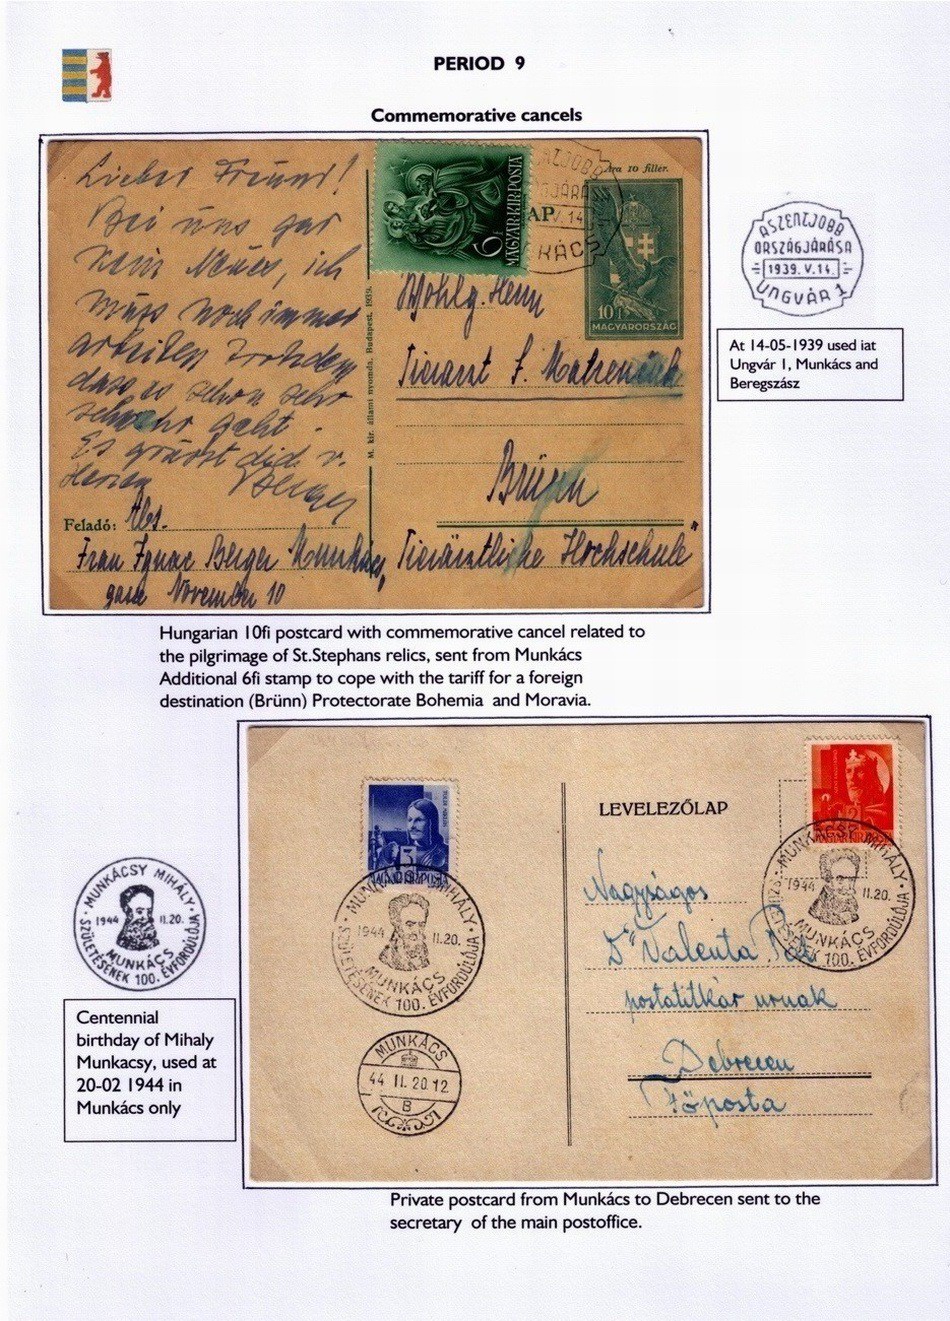 PERIOD 9
Commemorative cancels
Lieber Freund!
Bei uns gar
kein Neues, ich
muss noch immer
arbeiten trotzdem
dass es schon sehr
schwehr geht.
Es grüsst dich v.
Herzen Berger
Feladó: Abs.
Frau Ignac Berger Munkács,
gasse November 10
M. kir. állami nyomda. Budapest, 1939.
6f
MAGYAR KIR. POSTA
AP
Ára 10 filler.
V. 14
KÁCS
10f
MAGYARORSZÁG
Wohlg. Herrn
Tierarzt
Brünn
Tierärztliche Hochschule"
ASZENTJOBB
ORSZÁGJÁRÁSA
1939. V. 14.
UNGVÁR 1
At 14-05-1939 used iat
Ungvár 1, Munkács and
Beregszász
Hungarian 10fi postcard with commemorative cancel related to
the pilgrimage of St.Stephans relics, sent from Munkács
Additional 6fi stamp to cope with the tariff for a foreign
destination (Brünn) Protectorate Bohemia and Moravia.
MUNKÁCSY MIHÁLY
1944 II.20.
MUNKÁCS
SZÜLETÉSÉNEK 100. ÉVFORDULÓJA
Centennial
birthday of Mihaly
Munkacsy, used at
20-02 1944 in
Munkács only
3
MUNKÁCSY MIHÁLY
1944 II.20.
MUNKÁCS
SZÜLETÉSÉNEK 100. ÉVFORDULÓJA
MUNKÁCS
44 II. 20. 12
B
LEVELEZŐLAP
2
MUNKÁCSY MIHÁLY
1944 II.20.
MUNKÁCS
SZÜLETÉSÉNEK 100. ÉVFORDULÓJA
Nagyságos
Dr Valenta
postatitkár urnak
Debrecen
Főposta
Private postcard from Munkács to Debrecen sent to the
secretary of the main postoffice.